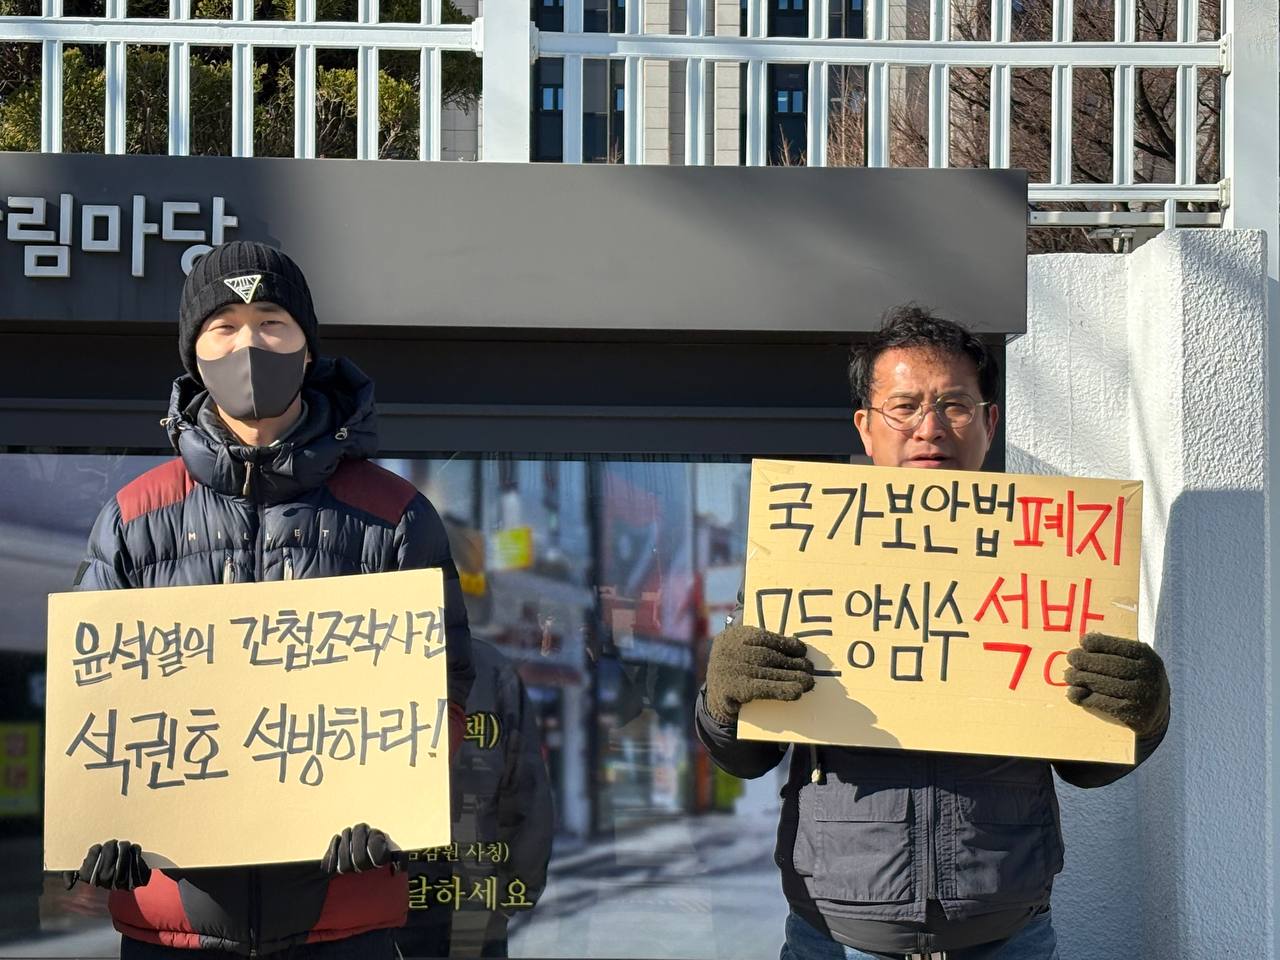 림마당
MILLET
윤석열의 간첩조작사건
석권호 석방하라!
국가보안법 폐지
모든 양심수 석방
책)
원 사칭)
달하세요